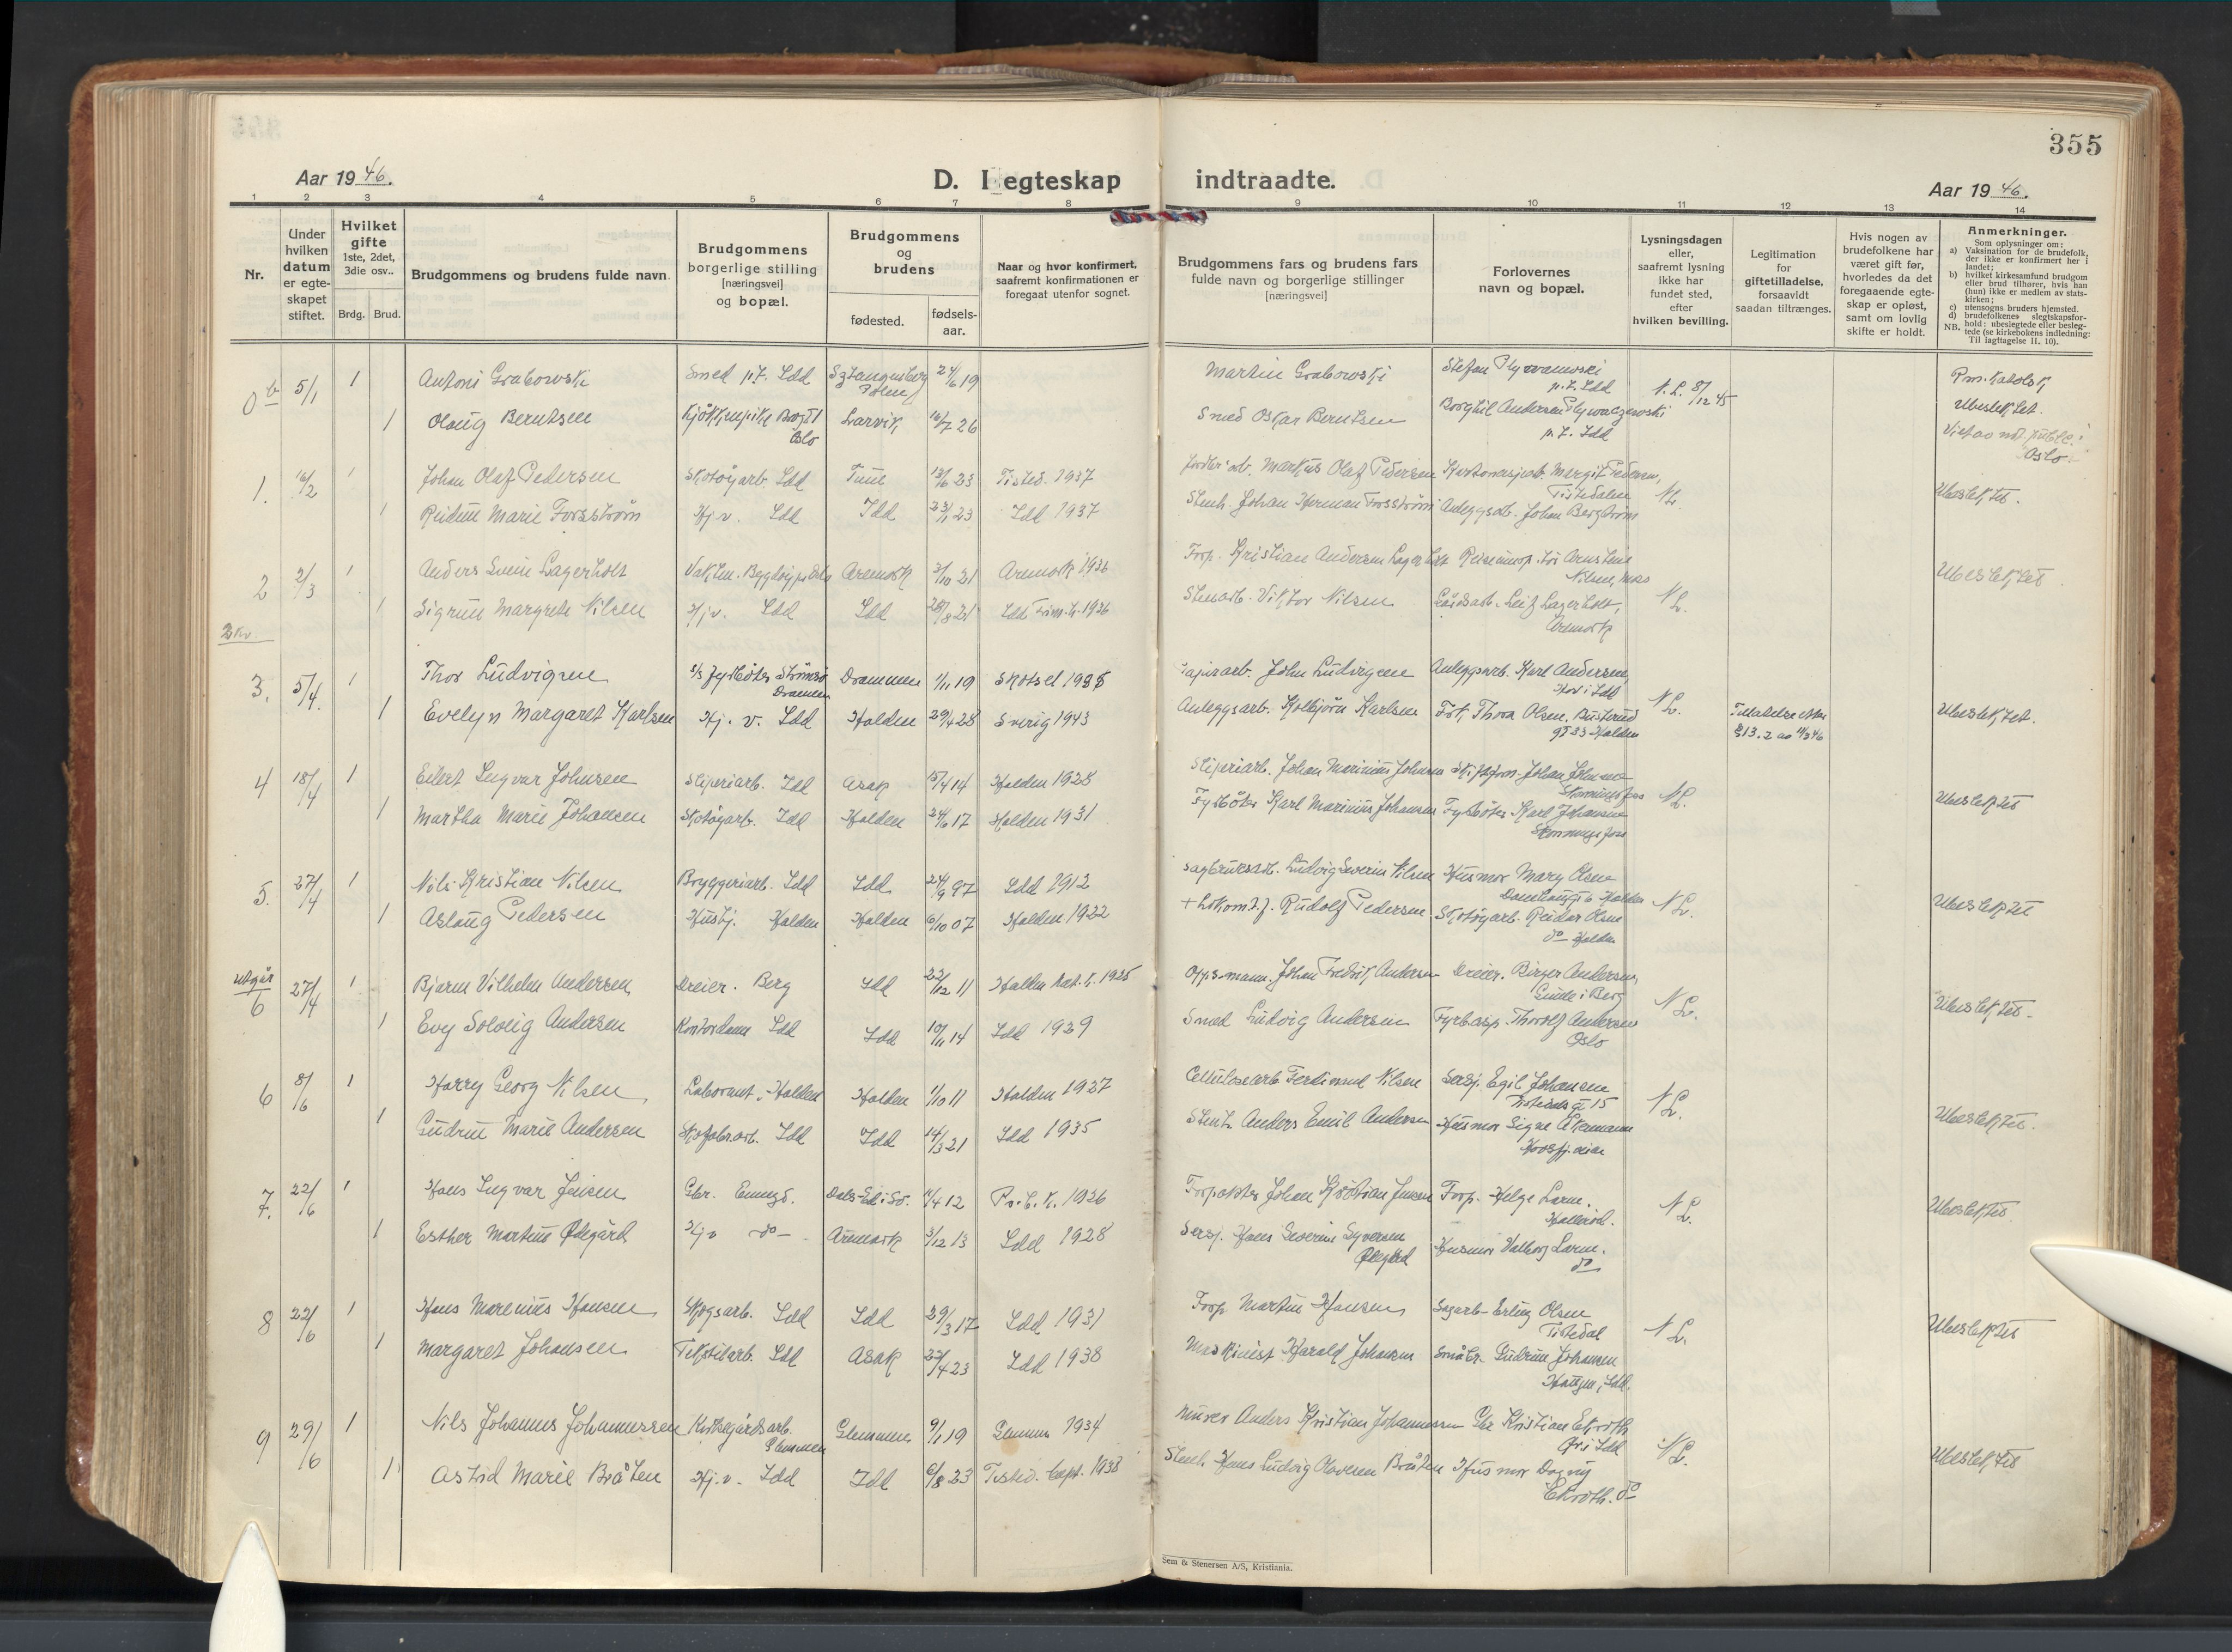 355
Aar 1946.
D. I egteskap indtraadte.
Aar 1946.
1 2 3 4 5 6 7 8 9 10 11 12 13 14
Nr.
Under
hvilken
datum
er egte-
skapet
stiftet.
Hvilket
gifte
1ste, 2det,
3die osv..
Brdg. Brud.
Brudgommens og brudens fulde navn.
Brudgommens
borgerlige stilling
[næringsvei]
og bopæl.
Brudgommens
og
brudens
fødested.
fødsels-
aar.
Naar og hvor konfirmert,
saafremt konfirmationen er
foregaat utenfor sognet.
Brudgommens fars og brudens fars
fulde navn og borgerlige stillinger
[næringsvei]
Forlovernes
navn og bopæl.
Lysningsdagen
eller,
saafremt lysning
ikke har
fundet sted,
efter
hvilken bevilling.
Legitimation
for
giftetilladelse,
forsaavidt
saadan tiltrænges.
Hvis nogen av
brudefolkene har
været gift før,
hvorledes da det
foregaaende egte-
skap er opløst,
samt om lovlig
skifte er holdt.
Anmerkninger.
Som oplysninger om:
a) Vaksination for de brudefolk,
der ikke er konfirmert her i
landet;
b) hvilket kirkesamfund brudgom
eller brud tilhører, hvis han
(hun) ikke er medlem av stats-
kirken;
c) utensogns bruders hjemsted.
d) brudefolkenes slegtskapsfor-
hold: ubeslegtede eller besleg-
NB. tede (se kirkebokens indledning:
Til iagttagelse II. 10).
0b 5/1 1 Antoni Grabowski Smed p.t. Idd 24/6 19 Martin Grabowski Stefan
p.t. Idd
N.L. 8/12 45 Rm. Katolsk
1 Olaug Berntsen Larvik 16/7 26 Smed Oskar Berntsen Borghil Andersen
Oslo p.t. Idd
Ubeslektet.
Oslo
1. 16/2 1 Johan Olaf Pedersen Skotøyarb. Idd Tune 13/6 23 Tisted. 1937 Markus Olaf Pedersen Margit Pedersen,
Tistedalen
NL. Ubeslektet.
1 Reidun Marie Forsström Hj.v. Idd Idd 23/1 23 Idd 1937 Stenh. Johan Herman Forsström Anleggsarb. Johan Bergström
2 2/3 1 Anders Svein Lagerholt Aremark 3/10 21 Aremark 1936 Forp. Kristian Andersen Lagerholt
Nilsen, Moss
Ubeslektet
1 Sigrun Margrete Nilsen Hj.v. Idd Idd 28/8 21 Idd 1936 Stenarb. Viktor Nilsen Gårdsarb. Leif Lagerholt,
Aremark
NL.
2 kv.
3. 5/4. 1 Thor Ludvigsen Fyrbøter Strømsø
Drammen
Drammen 1/11 19 Skotsel 1935 Papirarb. John Ludvigsen Anleggsarb. Karl Andersen,
Hov i Idd
NL.
1 Evelyn Margaret Karlsen Hj. v. Idd Halden 29/4 28 Sverig 1943 Anleggsarb. Kolbjörn Karlsen Frk. Thora Olsen, Busterud
gt 33 Halden
Tillatelse etter
§13.2 av 11/3 46
Ubeslektet.
4 18/4 1 Eilert Ingvar Johnsen Sliperiarb. Idd Asak 15/4 14 Halden 1928 Sliperiarb. Johan Marinius Johnsen Johan Johnsen
Skonningsfoss
NL. Ubeslektet
1 Martha Marie Johansen Skotøyarb. Idd Halden 24/6 17 Halden 1931 Fyrbøter Karl Marinius Johansen Fyrbøter Karl Johansen
Skonningsfoss
5. 27/4 1 Nils Kristian Nilsen Bryggeriarb. Idd Idd 24/9 97 Idd 1912 Sagbruksarb. Ludvig Severin Nilsen Husmor Mary Olsen
Halden
NL. Ubeslektet
1 Aslaug Pedersen Hustj. Halden Halden 6/10 07 Halden 1922 + Lokom.f. Rudolf Pedersen Skotøyarb. Reidar Olsen
do Halden
Utgår
6 27/4 1 Bjarne Vilhelm Andersen Dreier. Berg Idd 22/12 11 Halden kat. k. 1925 Opps.mann. Johan Fredrik Andersen Dreier. Birger Andersen,
Grude i Berg
NL. Ubeslektet.
1 Evy Solveig Andersen Kontordame Idd Idd 10/11 14 Idd 1929 Smed Ludvig Andersen Fyrbasp. Thorolf Andersen
Oslo
6 8/6 1 Harry Georg Nilsen, Laborant. Halden Halden 1/10 11 Halden 1927 Cellulosearb Ferdinand Nilsen Sersj. Egil Johansen
Tistedals gt 15
NL. Ubeslektet.
1 Gudrun Marie Andersen Skofabr.arb. Idd Idd 14/3 21 Idd 1935 Stenh. Anders Emil Andersen Husmor Signe Akermann
7. 22/6 1 Hans Ingvar Jensen Gbr. Enningd. Dals-Ed i Sv. 11/4 12 1926 Johan Kristian Jensen Forp. Helge Larne.
Hallerød.
NL. Ubeslektet
1 Esther Martine Ødegård Hj.v do Aremark 3/12 13 Idd 1928 Sersj. Hans Severin Syversen
Ødegård
Husmor Valborg Larne.
do
8 22/6 1 Hans Marenius Hansen Skogsarb. Idd Idd 29/3 17 Idd 1931 Forp. Martin Hansen, Sagarb. Erling Olsen
Tistedal
NL. Ubeslektet
1 Margaret Johansen Tekstilarb. Idd Asak 23/4 23 Idd 1938 Maskinist Harald Johansen Småbr. Gudrun Johansen
Haugen, Idd.
9 29/6 1 Nils Johannes Johannessen Kirkegårdsarb.
Glemmen
Glemmen 9/1 19 Glemmen 1934 Murer Anders Kristian Johannessen Gbr Kristian Ekroth
Ør i Idd
NL. Ubeslektet
1 Astrid Marie Bråten Hj.v. Idd Idd 6/8 23 Tisted. Sept. 1938 Stenh. Hans Ludvig Olavesen Bråten Husmor Dagny
Ekroth. do
Sem & Stenersen A/S, Kristiania.